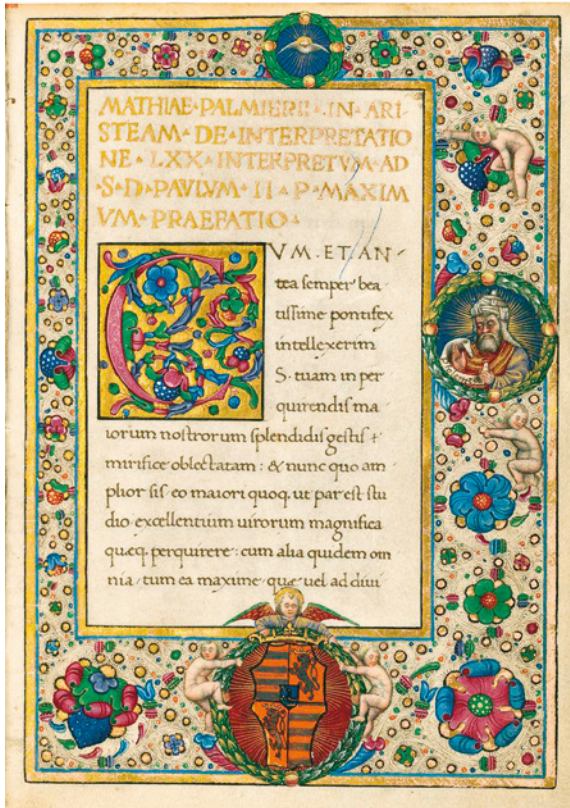 MATHIAE·PALMIERII·IN·ARI
STEAM·DE·INTERPRETATIO
NE·LXX·INTERPRETVM·AD
·S·D·PAVLVM·II·P·MAXIM
VM·PRAEFATIO·
CVM·ET·AN-
tea semper bea-
tissime pontifex
intellexerim
S. tuam in per
quirendis ma
iorum nostrorum splendidis gestis +
mirifice oblectatam: & nunc quo am
plior sis eo maiori quoq. ut par est stu
dio excellentium uirorum magnifica
quęq. perquirere: cum alia quidem om
nia / tum ea maxime quę uel ad diui